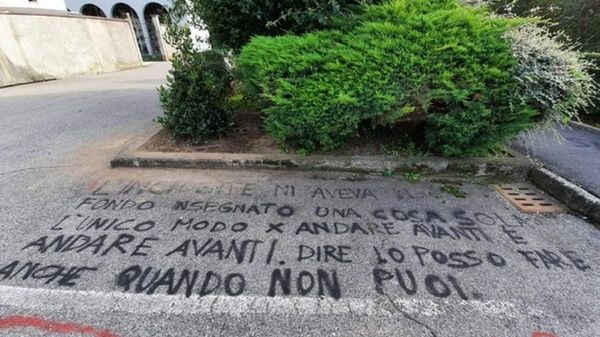 L'INCIDENTE MI AVEVA IN
FONDO INSEGNATO UNA COSA SOLA
L'UNICO MODO X ANDARE AVANTI È
ANDARE AVANTI. DIRE IO POSSO FARE
ANCHE QUANDO NON PUOI.